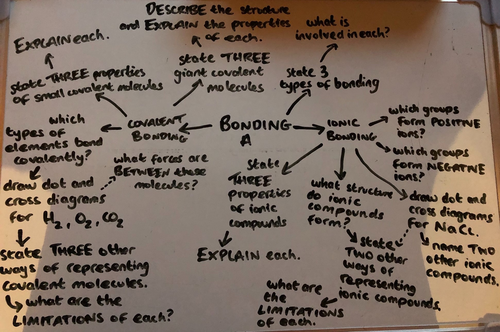 DESCRIBE the structure
and EXPLAIN the properties
of each.
what is
involved in each?
EXPLAIN each.
state THREE
giant covalent
molecules
state 3
types of bonding
state THREE properties
of small covalent molecules
which
types of
elements bond
covalently?
COVALENT
BONDING
BONDING
A
IONIC
BONDING
which groups
form POSITIVE
ions?
which groups
form NEGATIVE
ions?
what forces are
BETWEEN these
molecules?
draw dot and
cross diagrams
for H2, O2, CO2
state THREE other
ways of representing
covalent molecules.
what are the
LIMITATIONS of each?
state
THREE
properties
of ionic
compounds
EXPLAIN each.
what structure
do ionic
compounds
form?
draw dot and
cross diagrams
for NaCl.
name TWO
other ionic
compounds.
state
TWO other
ways of
representing
ionic compounds.
what are
the
LIMITATIONS
of each.